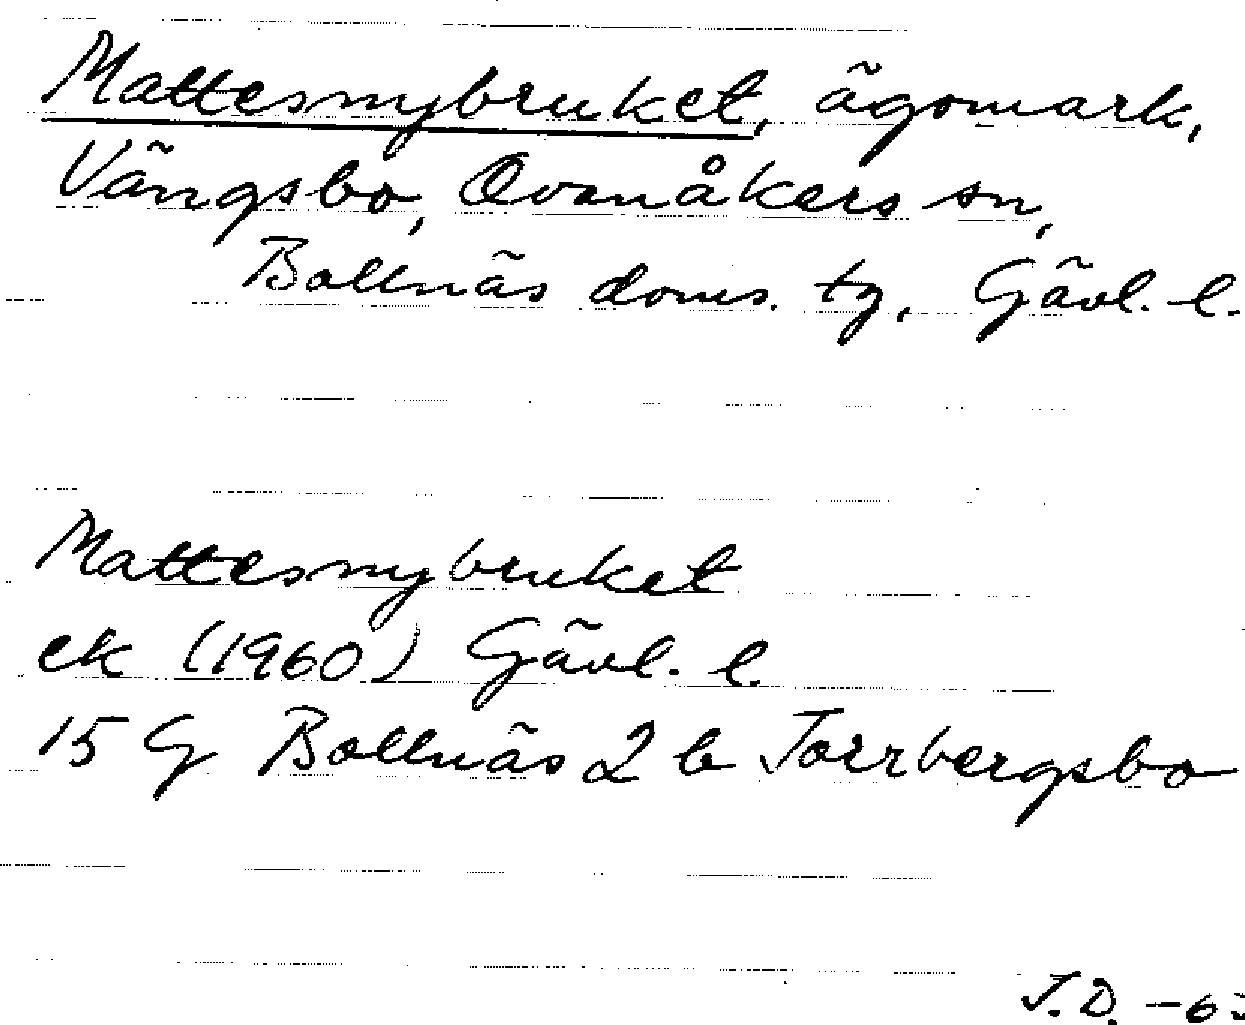 Mattesnybruket, ägomark,
Vängsbo, Ovanåkers sn,
Bollnäs doms. tg, Gävl. l.
Mattesnybruket
ek (1960) Gävl. l.
15 G Bollnäs 2 b Torrbergsbo
J.D.